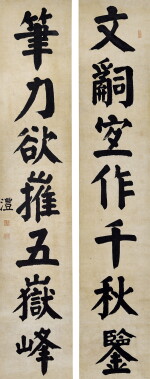 文嗣宜作千秋鑒
筆力欲摧五嶽峰
澧